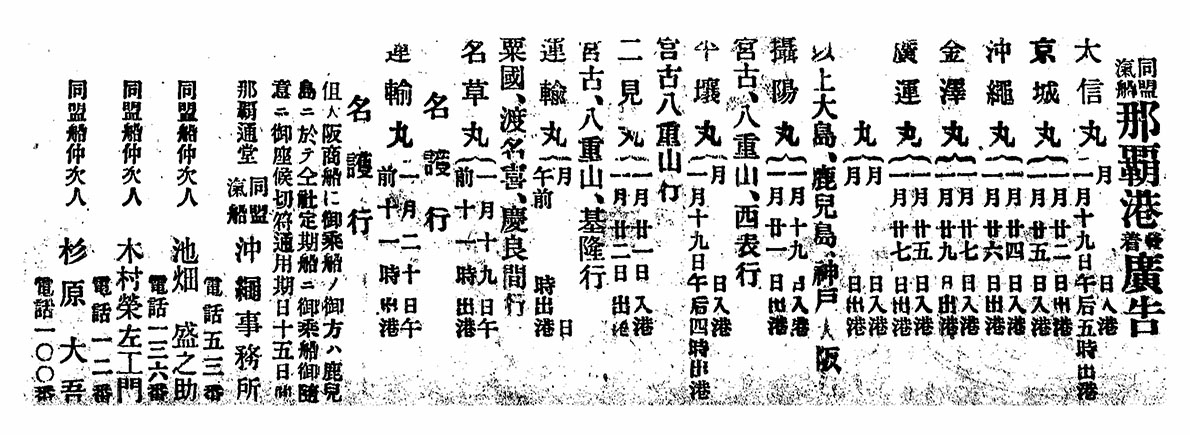 同盟
滊船
那覇港發着廣告
太信丸 月 日入港
一月十九日午后五時出港
京城丸 一月廿二日入港
一月廿五日出港
沖繩丸 一月廿四日入港
一月廿六日出港
金澤丸 一月廿七日入港
一月廿九日出港
廣運丸 一月廿五日入港
一月廿七日出港
丸 月 日入港
月 日出港
以上大島、鹿兒島、神戸 大阪
攝陽丸 一月十九日入港
一月廿一日出港
宮古、八重山、西表行
平壤丸 月 日入港
一月十九日午后四時出港
宮古八重山行
二見丸 一月廿一日入港
一月廿二日出港
宮古、八重山、基隆行
運輸丸 月 日
午前 時出港
粟國、渡名喜、慶良間行
名草丸 一月十九日午
前十一時出港
名護行
運輸丸 一月二十日午
前十一時出港
名護行
但大阪商船に御乘船ノ御方ハ鹿兒
島ニ於テ仝社定期船ニ御乘船御隨
意ニ御座候切符通用期日十五日間
那覇通堂
同盟
滊船
沖繩事務所
電話五三番
同盟船仲次人 池畑盛之助
電話一三六番
同盟船仲次人 木村榮左工門
電話一二番
同盟船仲次人 杉原大吾
電話一〇〇番